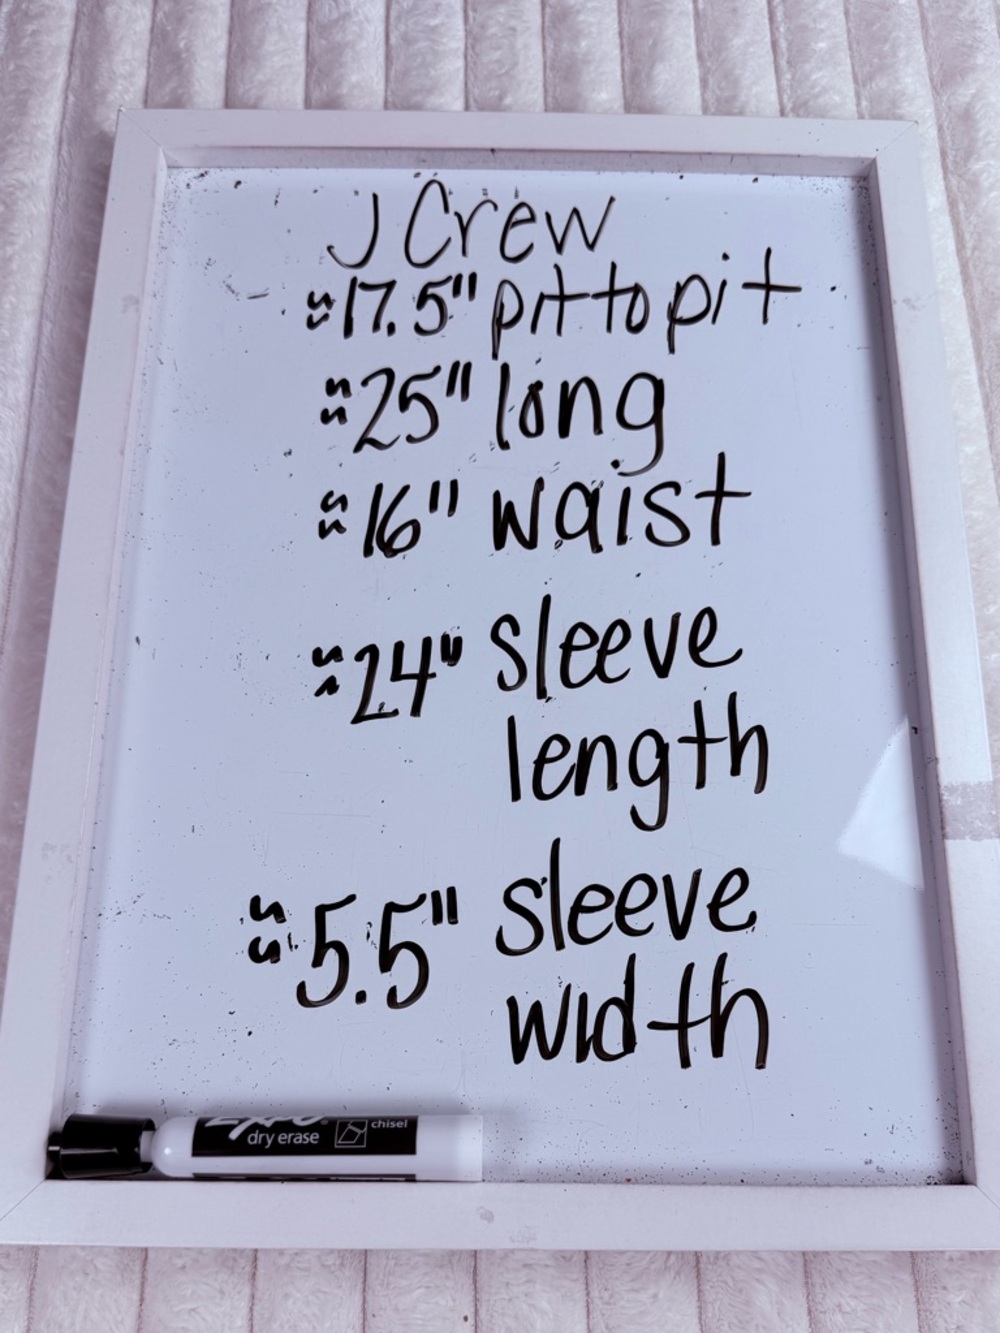 J Crew
≈17.5" pit to pit
≈25" long
≈16" waist
≈24" sleeve
length
≈5.5" sleeve
width
EXPO
dry erase
chisel